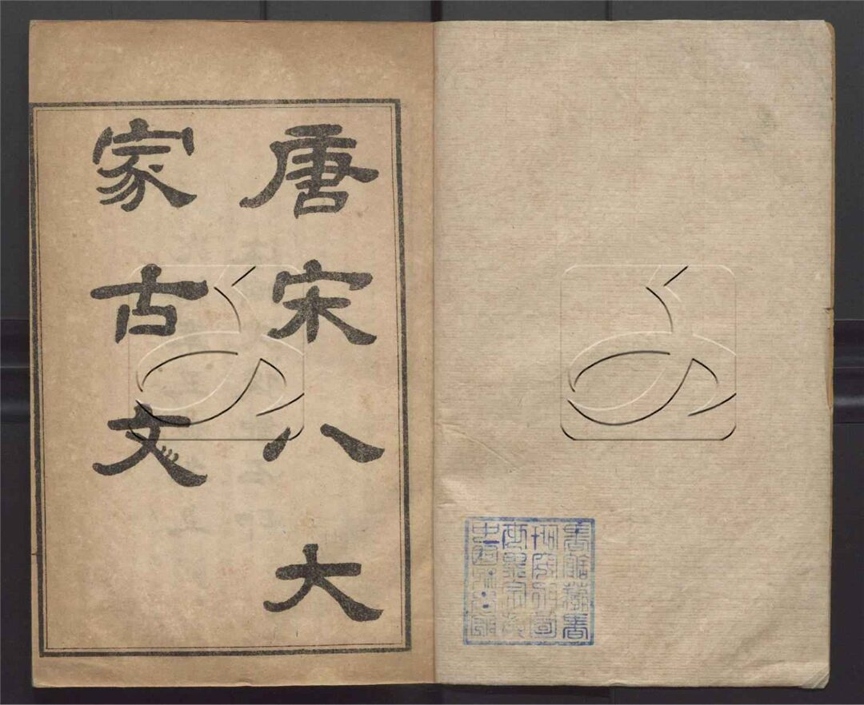 唐宋八大
家古文